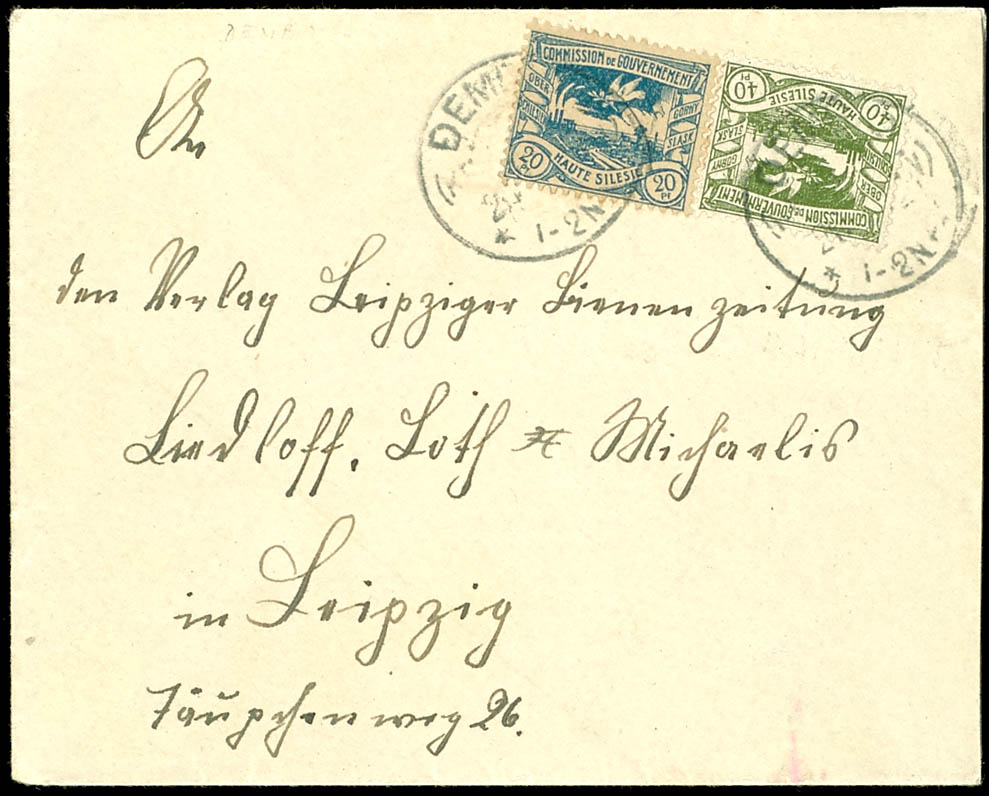 COMMISSION DE GOUVERNEMENT
OBER SCHLESIEN
GORNY ŚLĄSK
20 Pf
HAUTE SILESIE
20 Pf
COMMISSION DE GOUVERNEMENT
OBER
GORNY ŚLĄSK
40 Pf
HAUTE SILESIE
40 Pf
1-2N
1-2N
An
den Verlag Leipziger Bienenzeitung
Liedloff, Loth & Michaelis
in Leipzig
Täupchenweg 26.